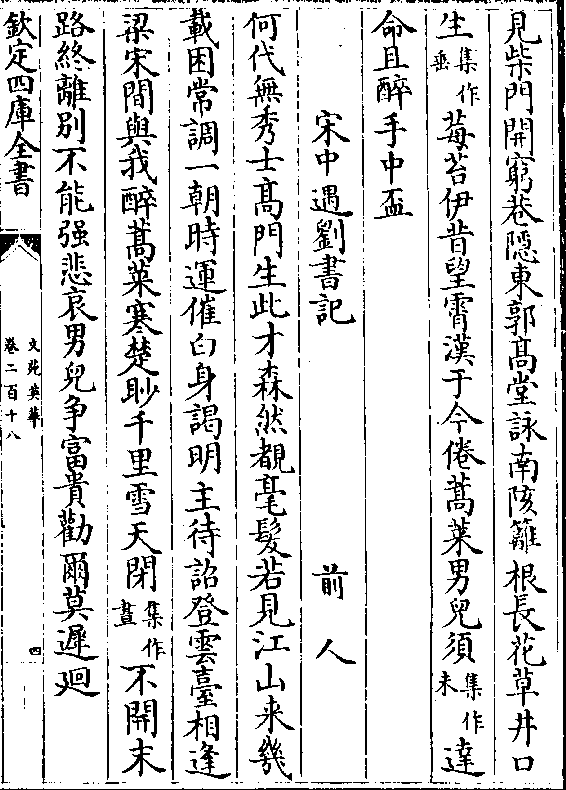 見柴門開窮巷隱東郭髙堂詠南陔籬根長花草井口
生集作垂莓苔伊昔望霄漢于今倦蒿萊男兒須集作未達
命且醉手中盃
宋中遇劉書記 前人
何代無秀士髙門生此才森然覩毫髮若見江山来幾
載困常調一朝時運催白身謁明主待詔登雲臺相逢
梁宋間與我醉蒿萊寒楚眇千里雪天閉集作晝不開末
路終離别不能强悲哀男兒争富貴勸爾莫遲廻
欽定四庫全書
文苑英華
卷二百十八
四